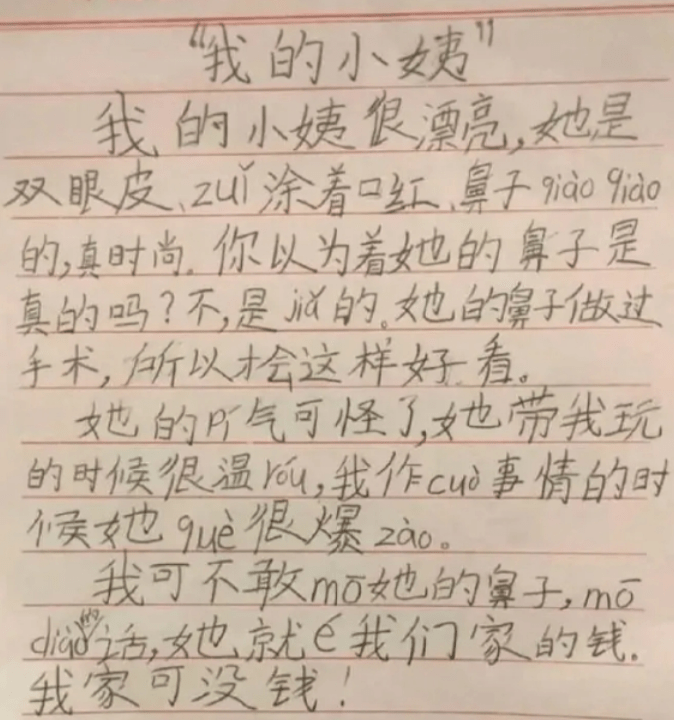 “我的小姨”
我的小姨很漂亮,她是
双眼皮、zuǐ涂着口红、鼻子qiào qiào
的,真时尚。你以为着她的鼻子是
真的吗?不,是jiǎ的。她的鼻子做过
手术,所以才会这样好看。
她的pí气可怪了,她带我玩
的时候很温róu,我作cuò事情的时
候她què很爆zào。
我可不敢mō她的鼻子,mō
diào的话,她就é我们家的钱.
我家可没钱!